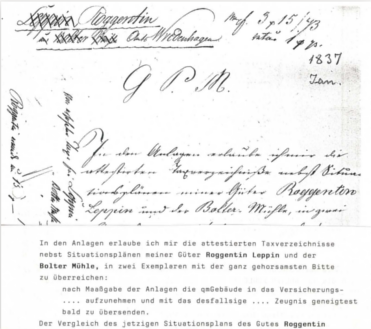 Roggentin
Amts Wredenhagen
1837
Jan.
G. P. M.
In den Anlagen erlaube ich mir die
attestirten Taxverzeichniße nebst Situa-
tionsplänen meiner Güter Roggentin
Leppin und der Bolter Mühle, in zwei
In den Anlagen erlaube ich mir die attestierten Taxverzeichnisse
nebst Situationsplänen meiner Güter Roggentin Leppin und der
Bolter Mühle, in zwei Exemplaren mit der ganz gehorsamsten Bitte
zu überreichen:
nach Maaßgabe der Anlagen die qmGebäude in das Versicherungs-
.... aufzunehmen und mit das desfallsige .... Zeugnis geneigtest
bald zu übersenden.
Der Vergleich des jetzigen Situationsplans des Gutes Roggentin